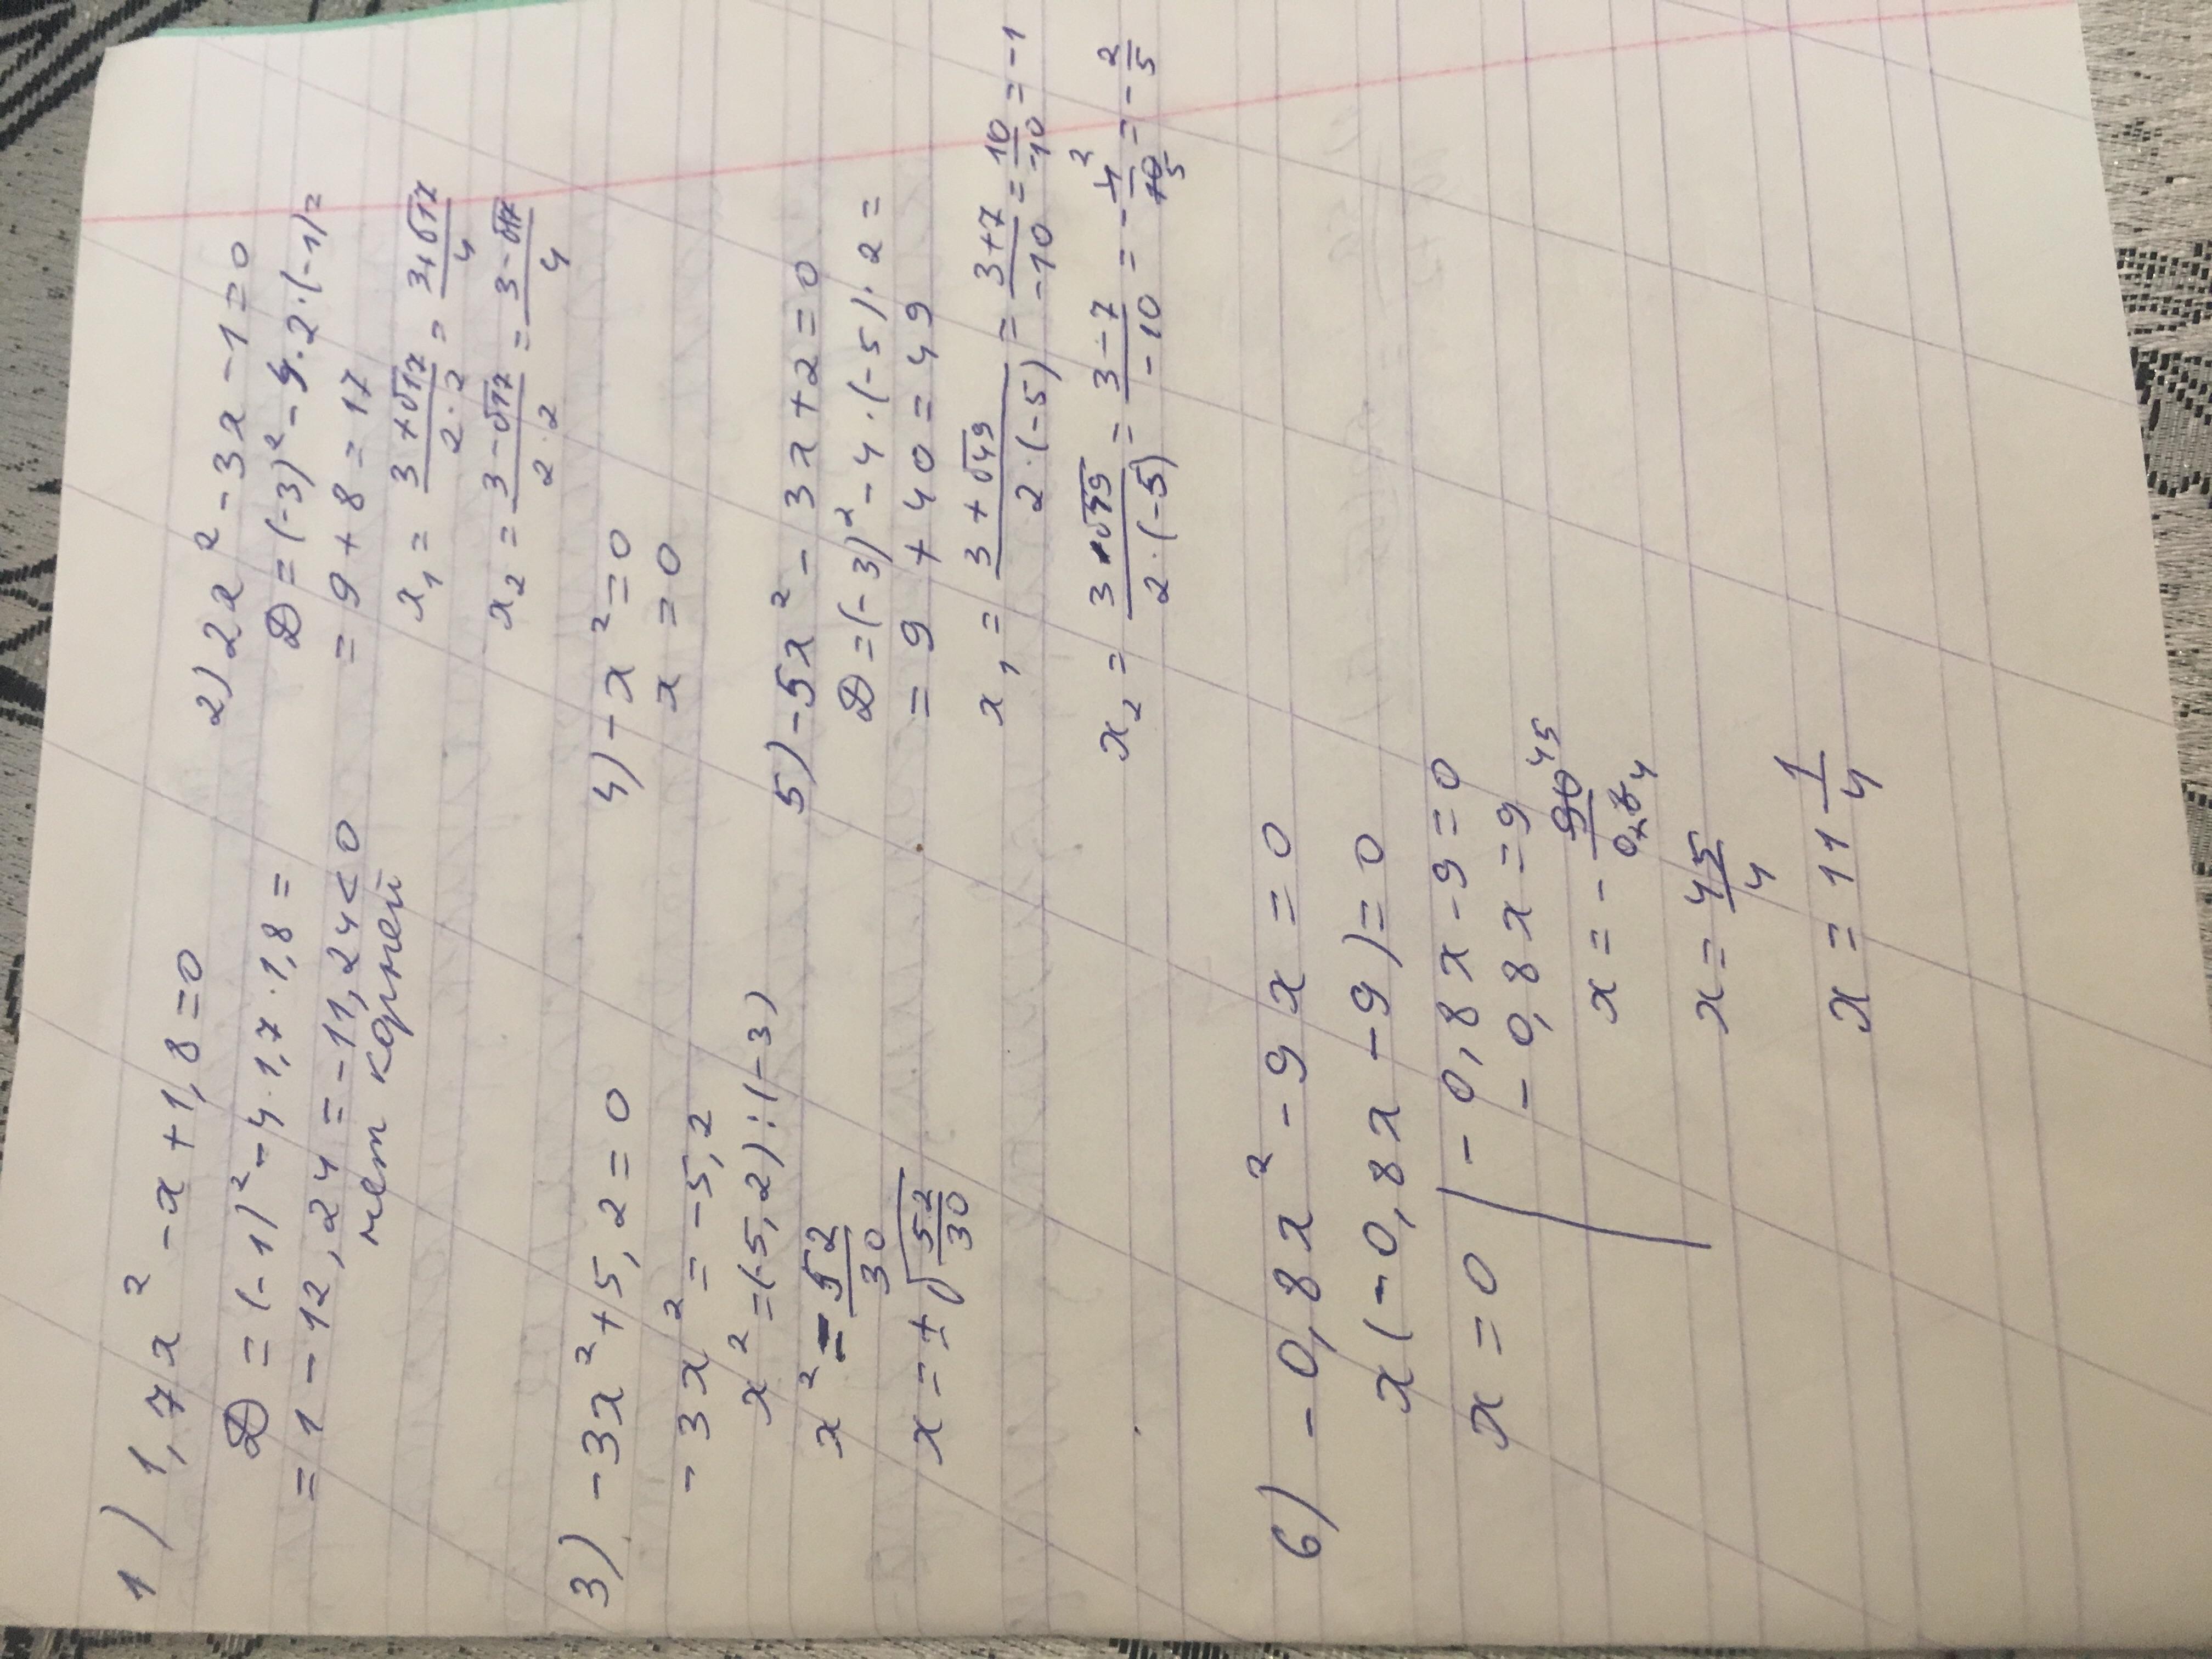 1) 1,7x² - x + 1,8 = 0
D = (-1)² - 4 · 1,7 · 1,8 =
= 1 - 12,24 = -11,24 < 0
нет корней
2) 2x² - 3x - 1 = 0
D = (-3)² - 4 · 2 · (-1) =
= 9 + 8 = 17
x₁ = (3 + √17)/(2 · 2) = (3 + √17)/4
x₂ = (3 - √17)/(2 · 2) = (3 - √17)/4
3) -3x² + 5,2 = 0
-3x² = -5,2
x² = (-5,2) : (-3)
x² = 52/30
x = ± √(52/30)
4) -x² = 0
x = 0
5) -5x² - 3x + 2 = 0
D = (-3)² - 4 · (-5) · 2 =
= 9 + 40 = 49
x₁ = (3 + √49)/(2 · (-5)) = (3 + 7)/-10 = 10/-10 = -1
x₂ = (3 - √49)/(2 · (-5)) = (3 - 7)/-10 = - 4/10 = - 2/5
6) -0,8x² - 9x = 0
x(-0,8x - 9) = 0
x = 0 | -0,8x - 9 = 0
-0,8x = 9
x = - 90/08
x = 45/4
x = 11 1/4